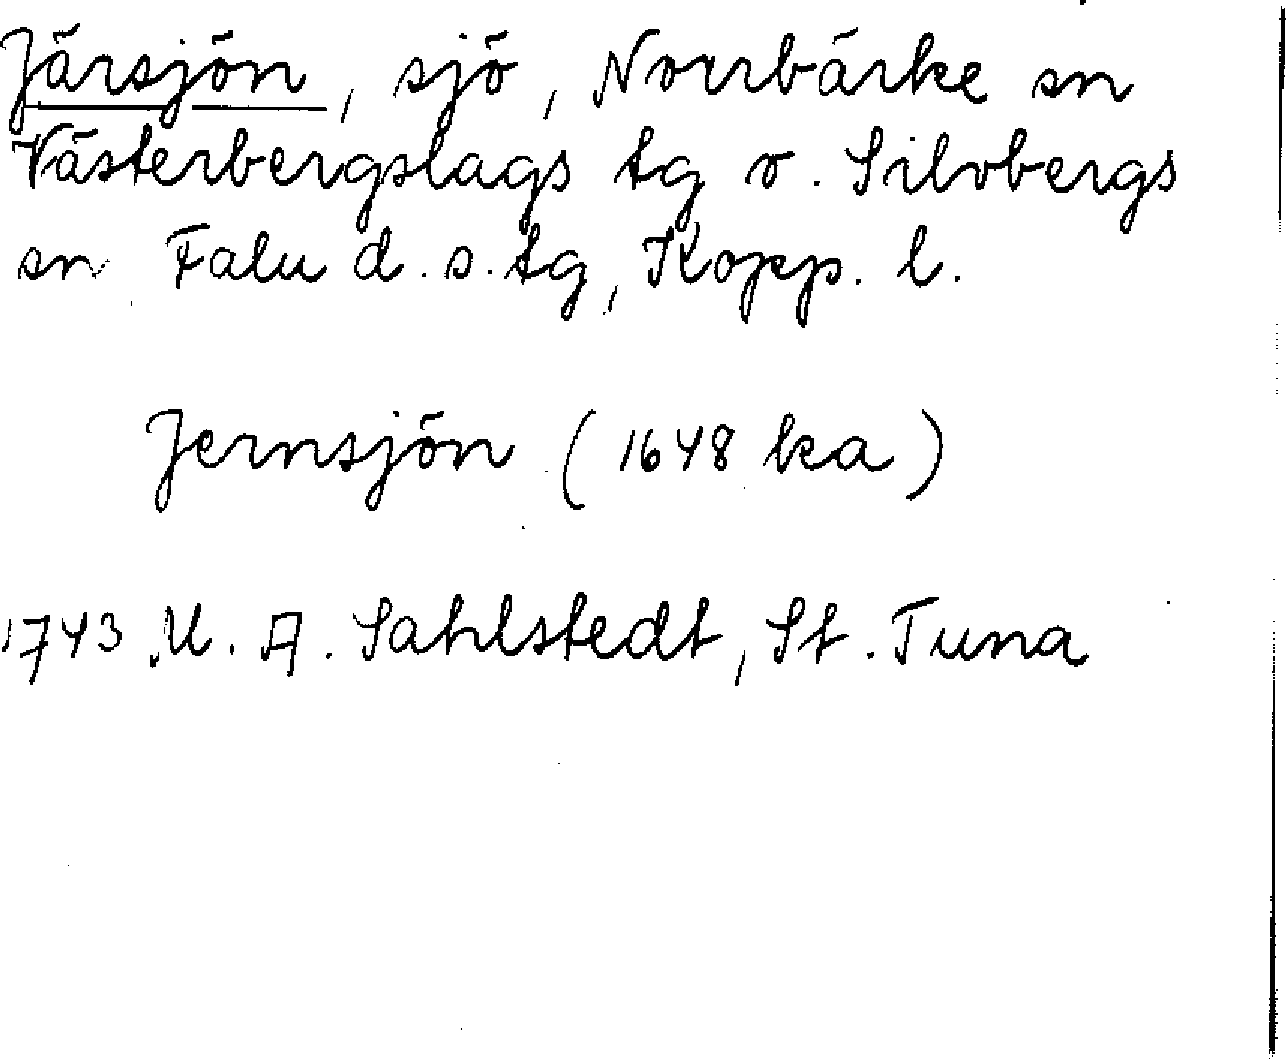 Järsjön, sjö, Norrbärke sn
Västerbergslags tg o. Silvbergs
sn Falu d. s. tg, Kopp. l.
Jernsjön (1648 ka)
1743 U. A. Sahlstedt, St. Tuna